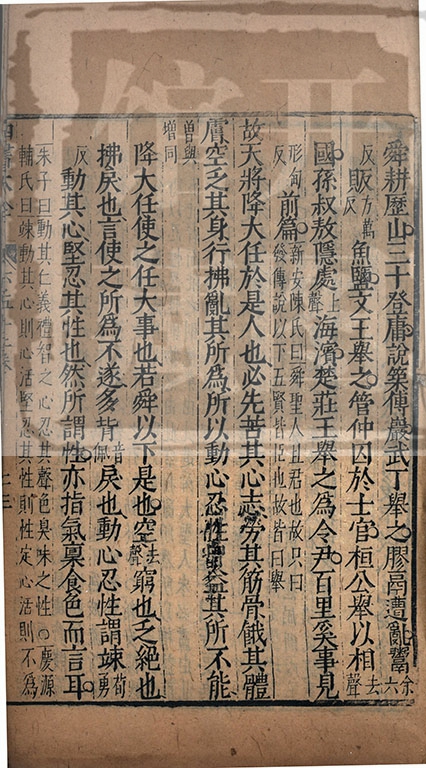 舜耕歷山三十登庸說築傅巖武丁舉之膠鬲遭亂鬻余六
反販方萬反魚鹽文王舉之管仲囚於士官桓公舉以相去聲
國孫叔敖隱處上聲海濱楚莊王舉之為令尹百里奚事見
形甸反前篇新安陳氏曰舜聖人且君也故只曰發傅說以下五賢皆臣也故皆曰舉
故天將降大任於是人也必先苦其心志勞其筋骨餓其體
膚空乏其身行拂亂其所為所以動心忍性曾益其所不能
曾與增同
降大任使之任大事也若舜以下是也空去聲窮也乏絕也
拂戾也言使之所為不遂多背音佩戾也動心忍性謂竦荀勇
反動其心堅忍其性也然所謂性亦指氣稟食色而言耳
朱子曰動其仁義禮智之心忍其聲色臭味之性○慶源
輔氏曰竦動其心則心活堅忍其性則性定心活則不為